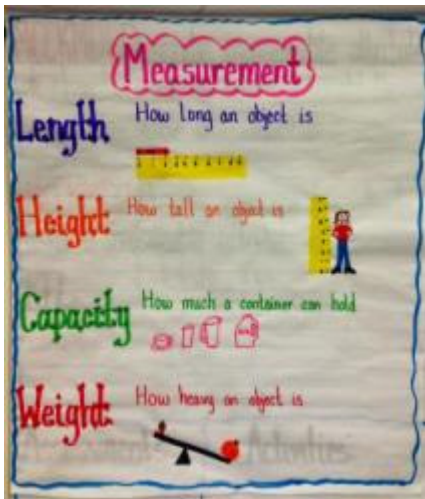 Measurement
Length How long an object is
Height: How tall an object is
Capacity How much a container can hold
Weight: How heavy an object is
Activities